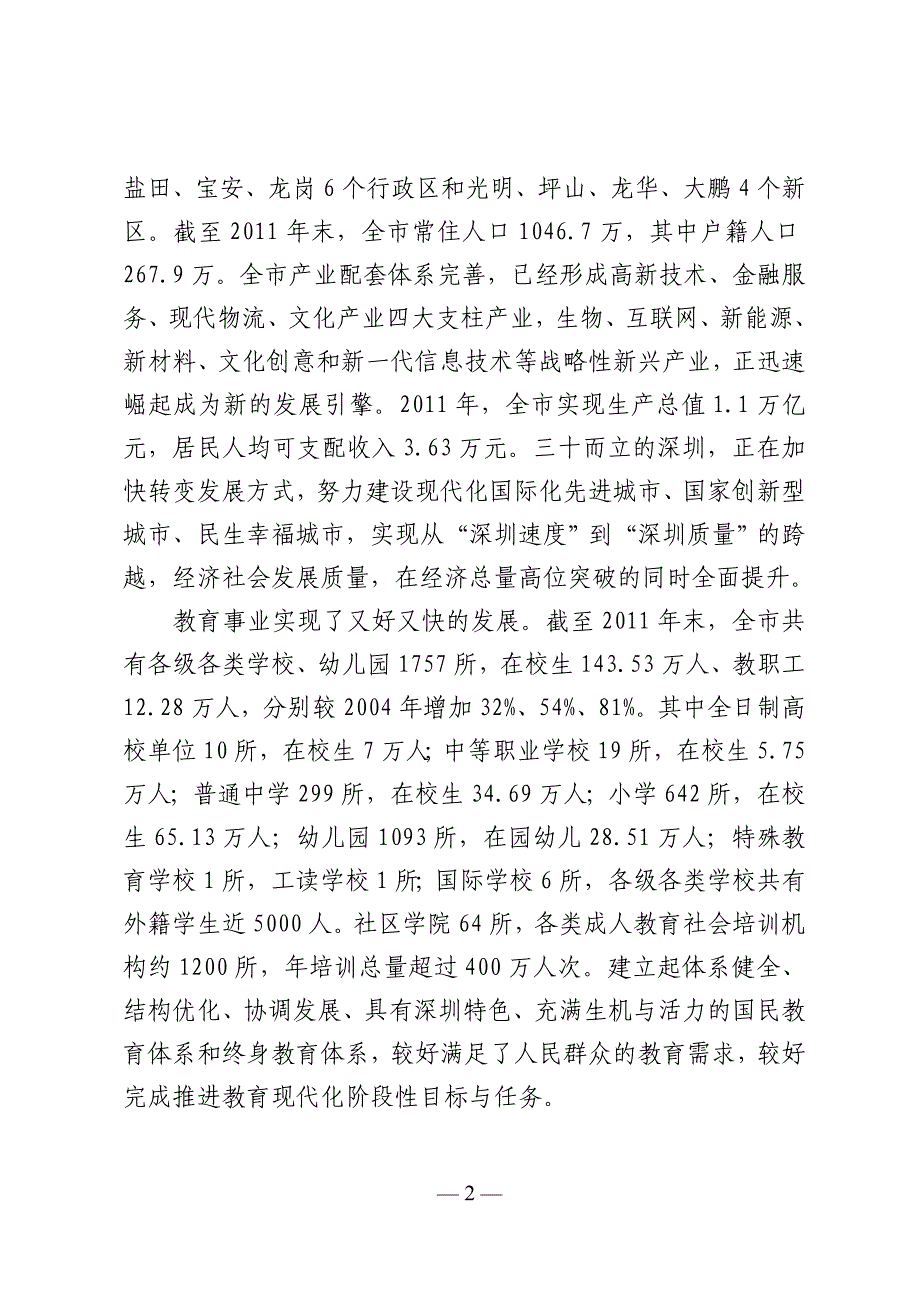 盐田、宝安、龙岗 6 个行政区和光明、坪山、龙华、大鹏 4 个新
区。截至 2011 年末，全市常住人口 1046.7 万，其中户籍人口
267.9 万。全市产业配套体系完善，已经形成高新技术、金融服
务、现代物流、文化产业四大支柱产业，生物、互联网、新能源、
新材料、文化创意和新一代信息技术等战略性新兴产业，正迅速
崛起成为新的发展引擎。2011 年，全市实现生产总值 1.1 万亿
元，居民人均可支配收入 3.63 万元。三十而立的深圳，正在加
快转变发展方式，努力建设现代化国际化先进城市、国家创新型
城市、民生幸福城市，实现从“深圳速度”到“深圳质量”的跨
越，经济社会发展质量，在经济总量高位突破的同时全面提升。
教育事业实现了又好又快的发展。截至 2011 年末，全市共
有各级各类学校、幼儿园 1757 所，在校生 143.53 万人、教职工
12.28 万人，分别较 2004 年增加 32%、54%、81%。其中全日制高
校单位 10 所，在校生 7 万人；中等职业学校 19 所，在校生 5.75
万人；普通中学 299 所，在校生 34.69 万人；小学 642 所，在校
生 65.13 万人；幼儿园 1093 所，在园幼儿 28.51 万人；特殊教
育学校 1 所，工读学校 1 所；国际学校 6 所，各级各类学校共有
外籍学生近 5000 人。社区学院 64 所，各类成人教育社会培训机
构约 1200 所，年培训总量超过 400 万人次。建立起体系健全、
结构优化、协调发展、具有深圳特色、充满生机与活力的国民教
育体系和终身教育体系，较好满足了人民群众的教育需求，较好
完成推进教育现代化阶段性目标与任务。
— 2 —